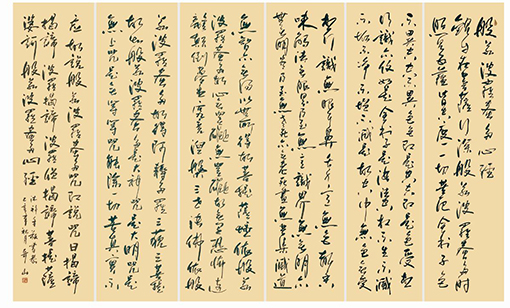 般若波羅蜜多心經
觀自在菩薩行深般若波羅蜜多時
照見五蘊皆空度一切苦厄舍利子色
不異空空不異色色即是空空即是色受想
行識亦復如是舍利子是諸法空相不生不滅
不垢不淨不增不減是故空中無色無受
想行識無眼耳鼻舌身意無色聲香
味觸法無眼界乃至無意識界無無明亦
無無明盡乃至無老死亦無老死盡無苦集滅道
無智亦無得以無所得故菩提薩埵依般若
波羅蜜多故心無罣礙無罣礙故無有恐怖遠
離顛倒夢想究竟涅槃三世諸佛依般
若波羅蜜多故得阿耨多羅三藐三菩提
故知般若波羅蜜多是大神咒是大明咒是
無上咒是無等等咒能除一切苦真實不
虛故說般若波羅蜜多咒即說咒曰揭諦
揭諦波羅揭諦波羅僧揭諦菩提薩
婆訶般若波羅蜜多心經